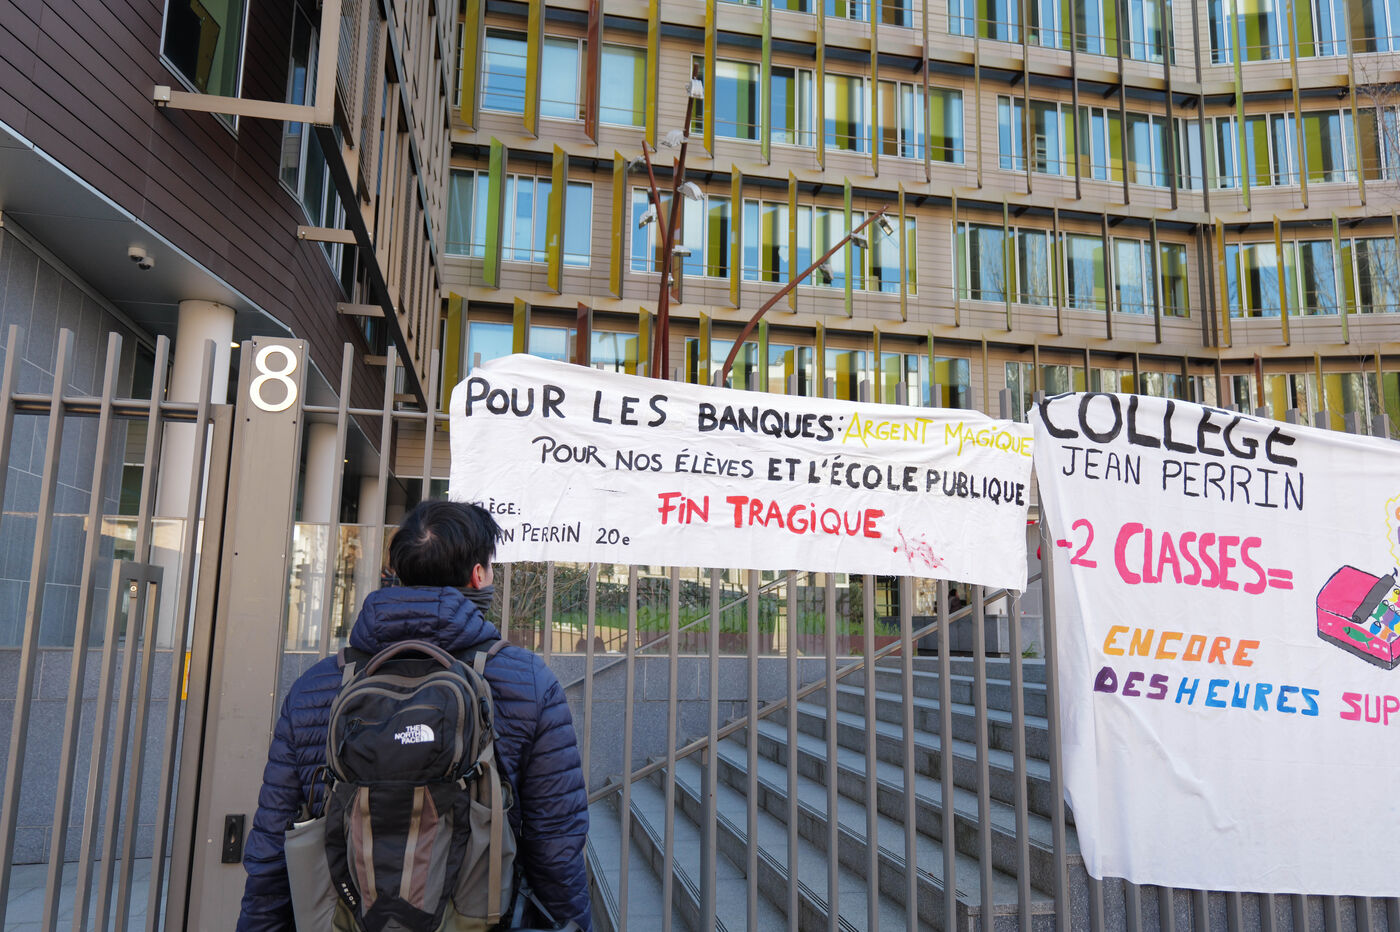 8
POUR LES BANQUES: ARGENT MAGIQUE
POUR NOS ÉLÈVES ET L'ÉCOLE PUBLIQUE
FIN TRAGIQUE
PERRIN 20e
COLLÈGE
JEAN PERRIN
-2 CLASSES=
ENCORE
DES HEURES SUP
THE
NORTH
FACE